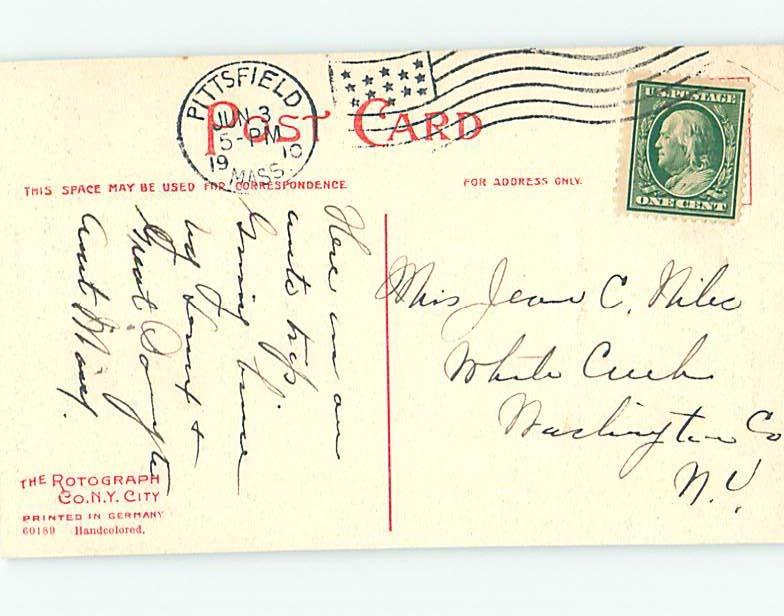 PITTSFIELD
JUN 3
5-PM
19 10
MASS.
POST CARD
U.S. POSTAGE
ONE CENT
THIS SPACE MAY BE USED FOR CORRESPONDENCE
FOR ADDRESS ONLY.
Here on an
auto trip.
Going home
by &
Great
Aunt
Miss Jean C. Niles
White Creek
Washington Co
N.Y.
THE ROTOGRAPH
CO. N.Y. CITY
PRINTED IN GERMANY
60189 Handcolored.